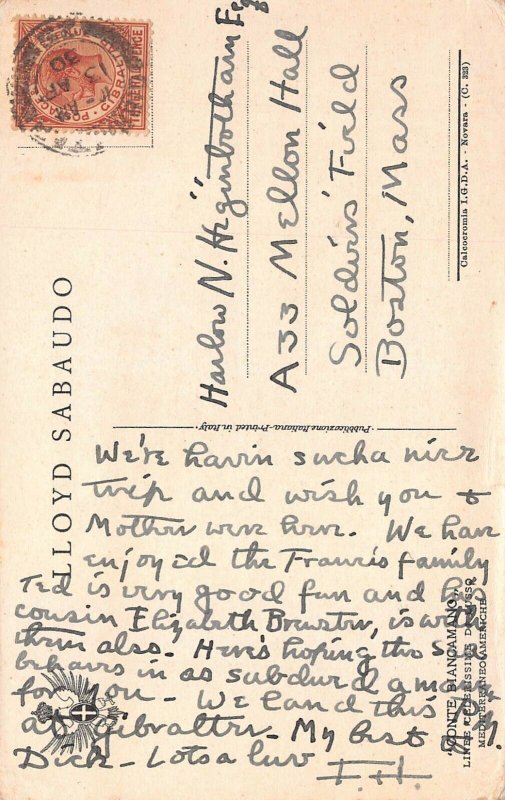 LLOYD SABAUDO
GIBRALTAR
POSTAGE
THREE HALF PENCE
Harlow N. Higinbotham Esq
A33 Mellon Hall
Soldiers' Field
Boston, Mass
Calcocromia I.G.D.A. - Novara - (C. 323)
Pubblicazione Italiana-Printed in Italy.
We're havin sucha nice
trip and wish you +
Mother were here. We have
enjoyed the Francis family
Ted is very good fun and his
cousin Elizabeth Brewster, is with
them also. Here's hoping the sea
behaves in as subdued a manner
for you - We land this
at Gibralter. My best
Dick - Lotsa luv
F.H.
"CONTE BIANCAMANO"
LINEE CELERISSIME DI LUSSO
MEDITERRANEO-AMERICHE